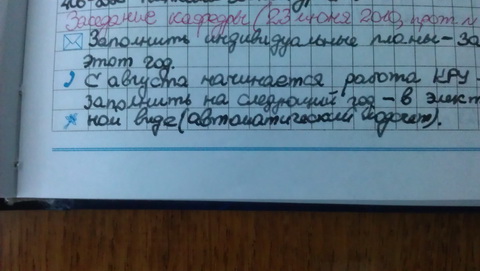 Заседание кафедры (23 июня 2010, прот. №
Заполнить индивидуальные планы – за
этот год.
С августа начинается работа КРУ –
заполнить на следующий год – в элект
ном виде (автоматический подсчет).